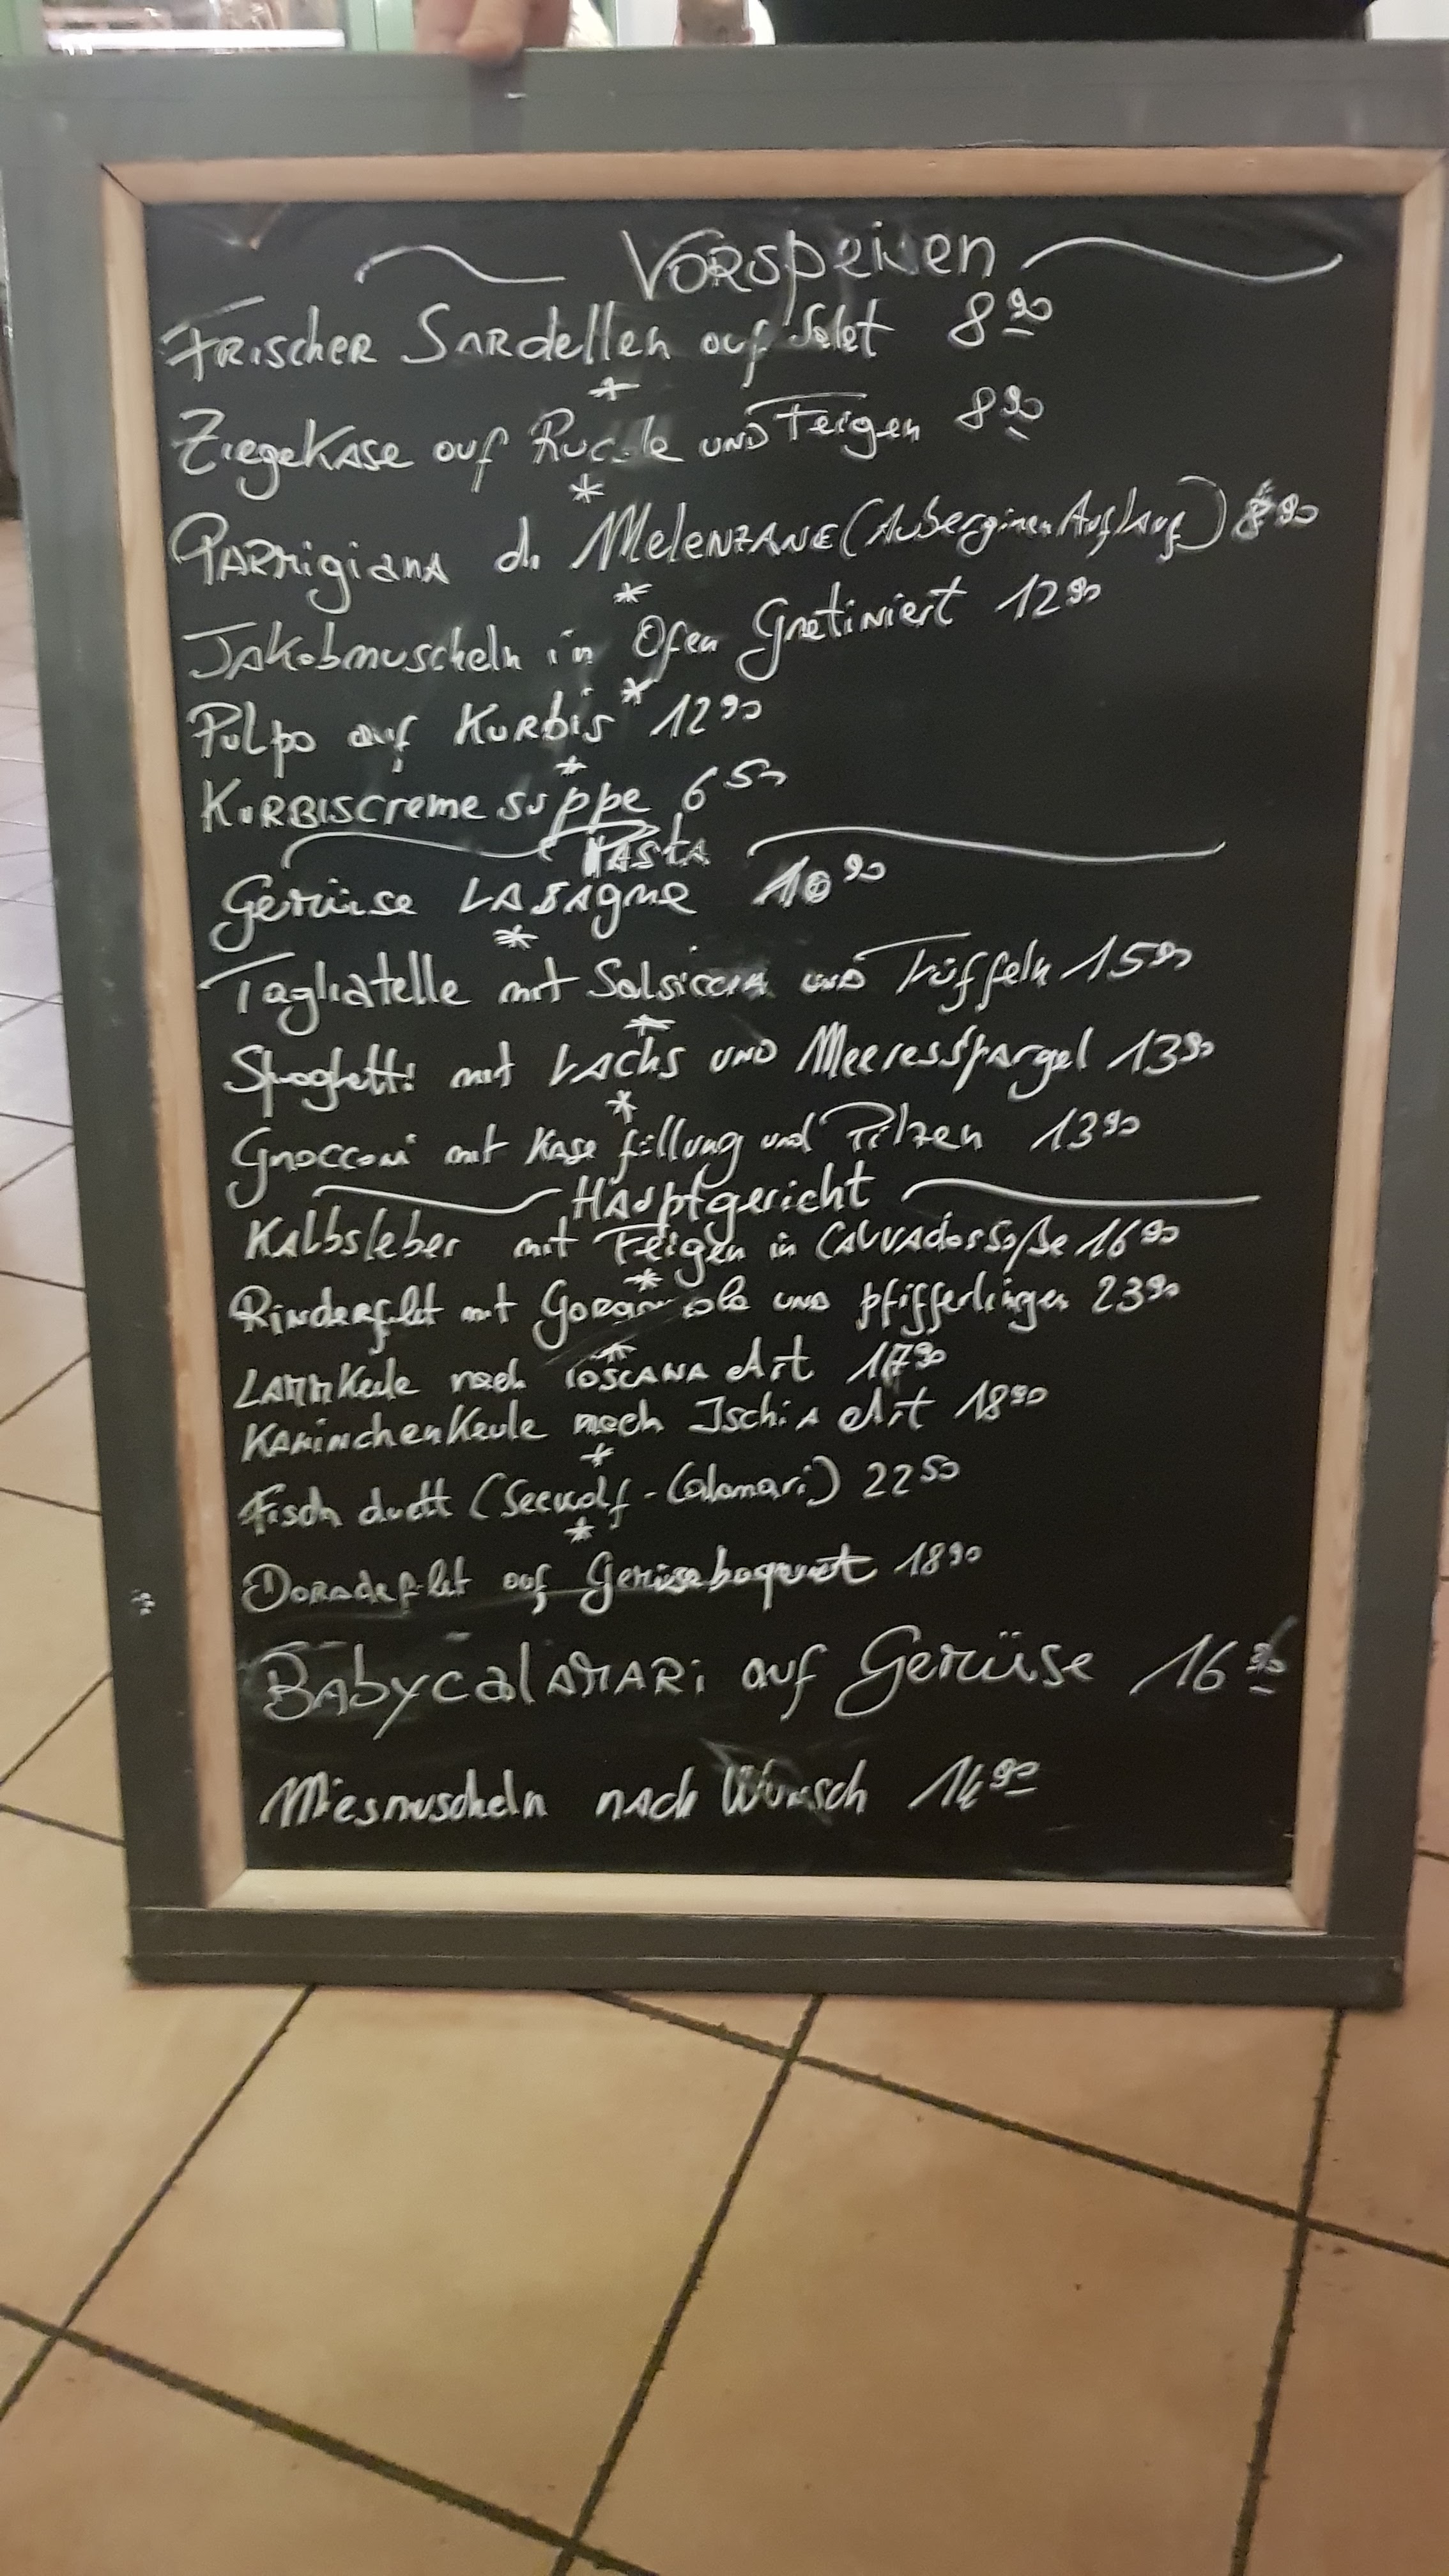 Vorspeisen
Frischer Sardellen auf Salat 8 90
*
Ziegekase auf Rucola und Feigen 8 90
*
Parmigiana di Melenzane (Auberginen Auflauf) 8 90
*
Jakobmuscheln in Ofen Gratiniert 12 90
*
Pulpo auf Kurbis 12 90
*
Kurbiscreme suppe 6 50
Pasta
Gemüse Lasagne 10 90
*
Tagliatelle mit Salsiccia und Trüffeln 15 90
*
Spaghetti mit Lachs und Meeresspargel 13 90
*
Gnocchi mit Kase füllung und Pilzen 13 90
Hauptgericht
Kalbsleber mit Feigen in Calvadossoße 16 90
*
Rinderfilet mit Gorgonzola und Pfifferlingen 23 90
*
Lammkeule nach Toscana Art 17 90
Kaninchenkeule nach Ischia Art 18 90
*
Fisch duett (Seewolf - Calamari) 22 50
*
Doradefilet auf Gemüsebaquet 18 90
Babycalamari auf Gemüse 16 90
Miesmuscheln nach Wunsch 14 90